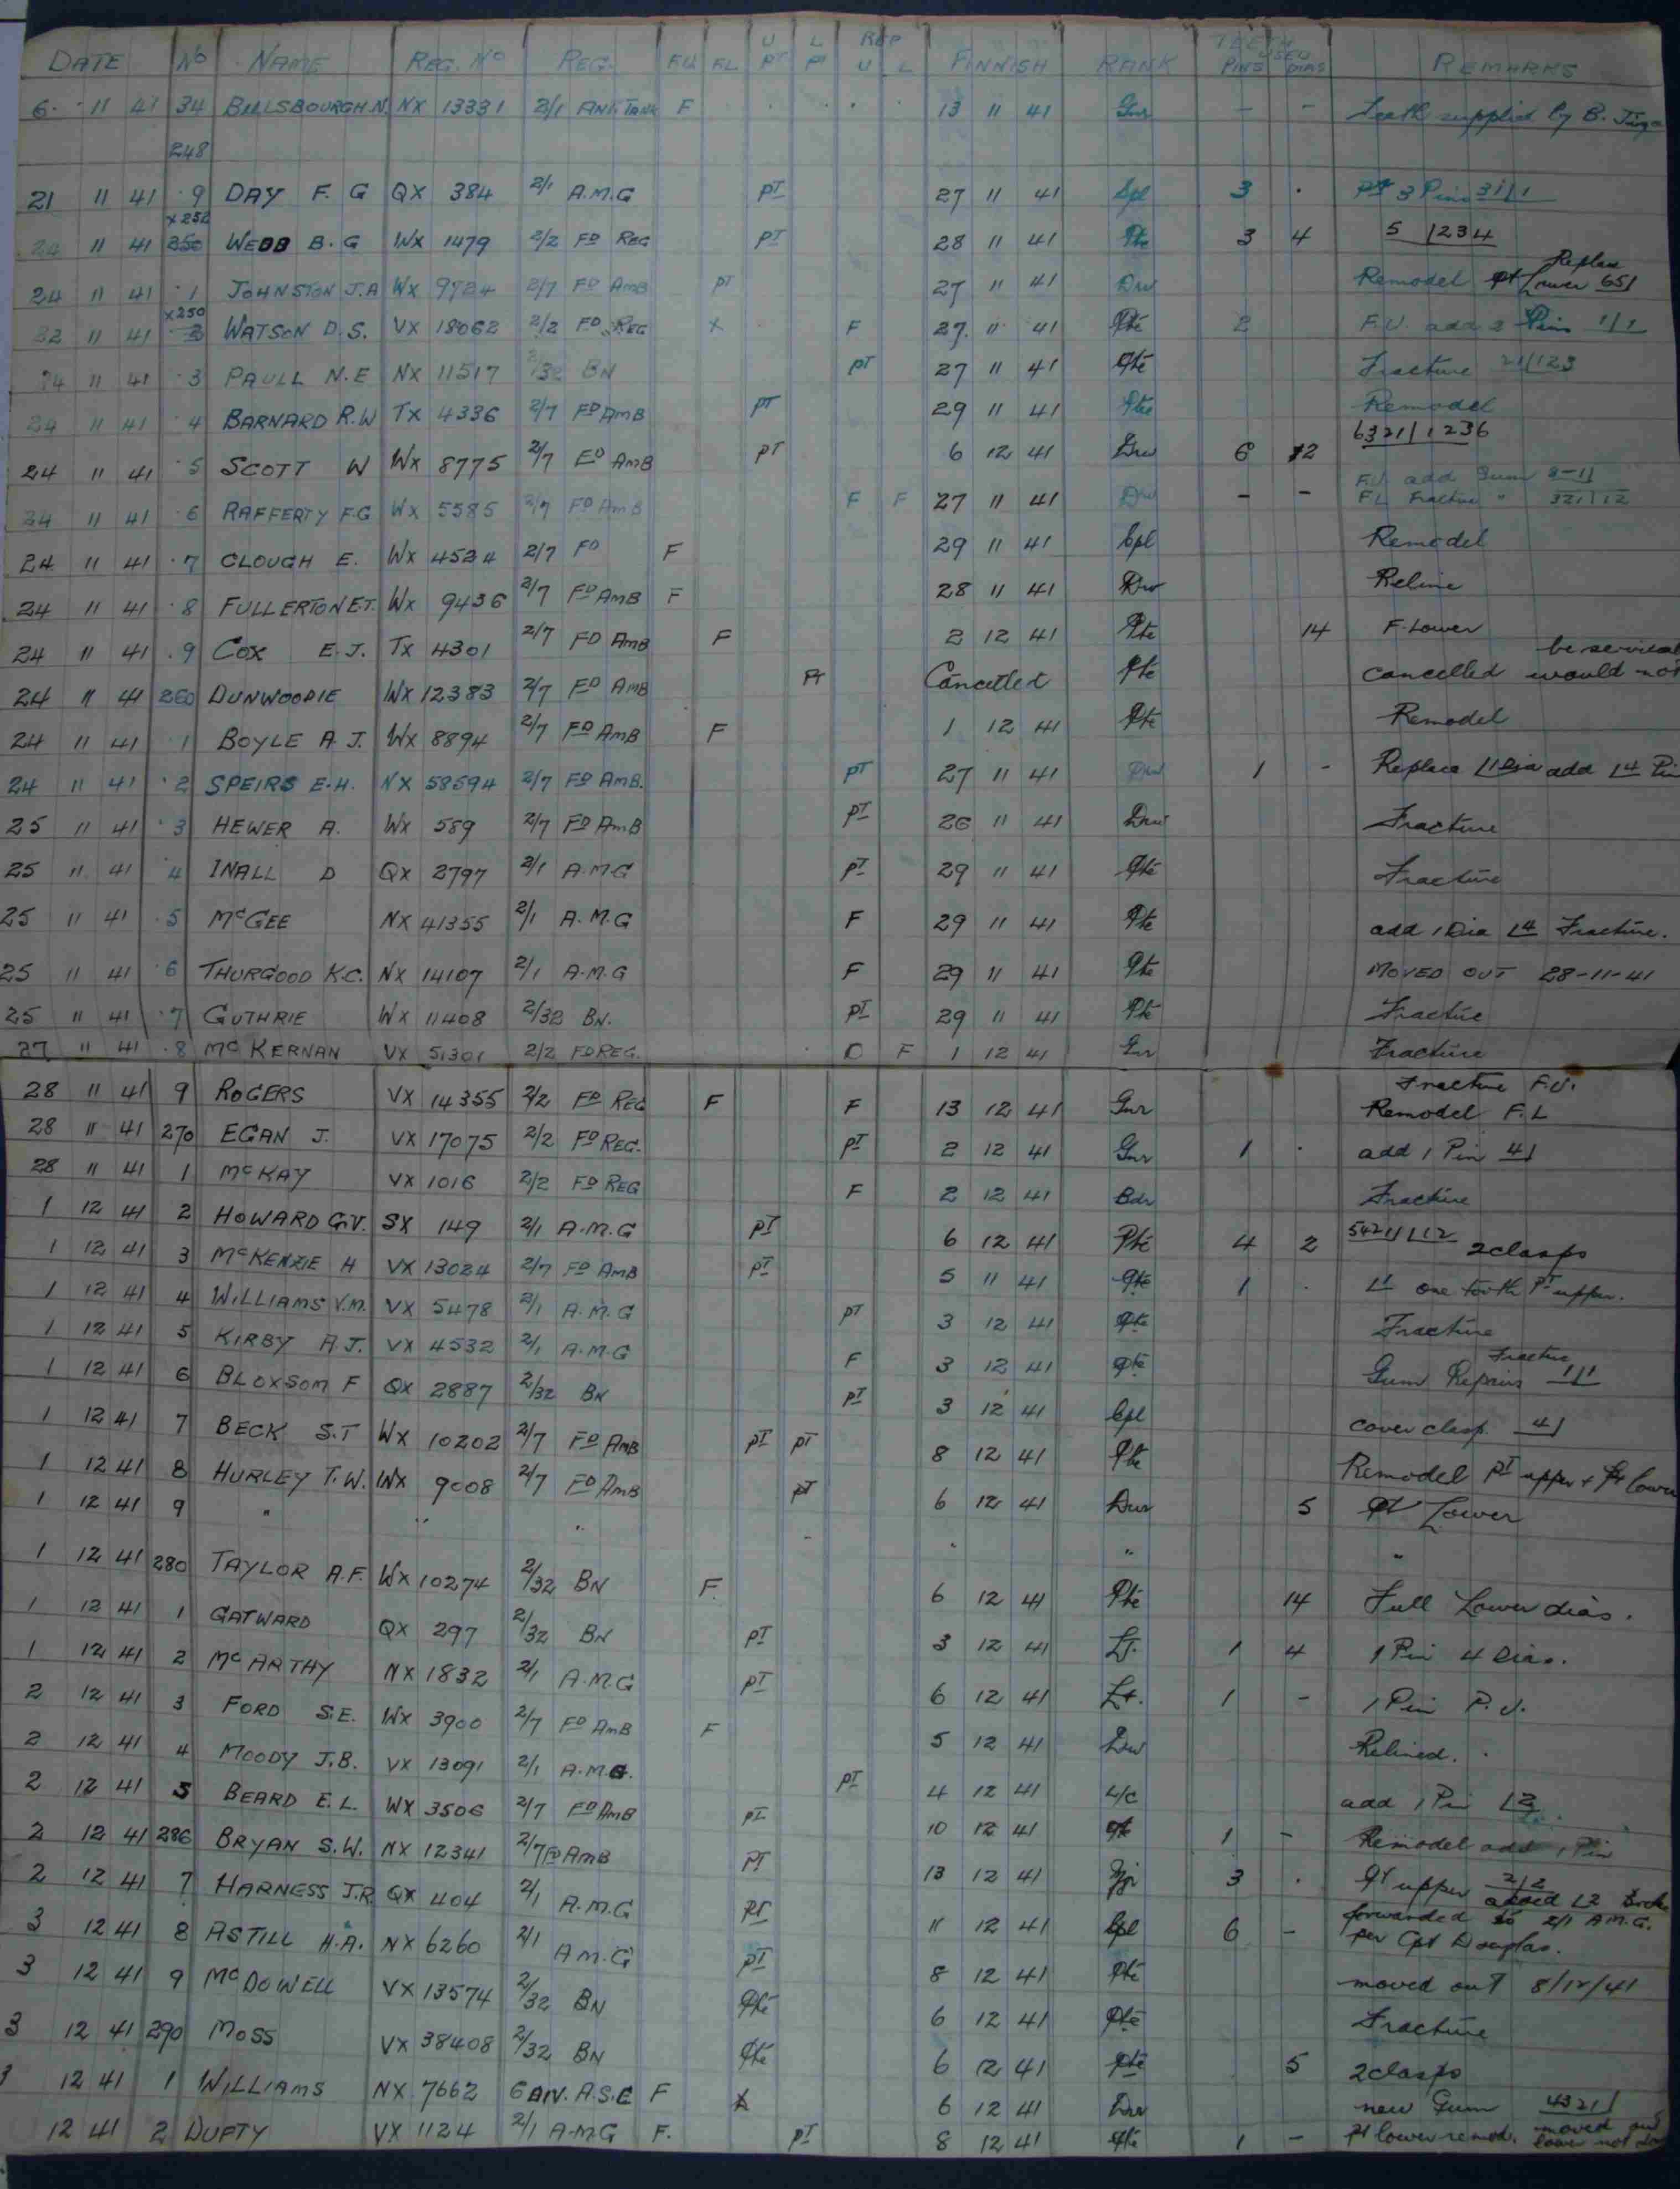 DATE NO NAME REG. NO REG. FU FL U PT L PT REP U L FINNISH RANK TEETH USED PINS DIAS REMARKS
6 11 41 34 BILLSBOURGH.N. NX 13331 2/1 ANT. TANK F 13 11 41 Gnr - - Teeth supplied by B.
248
21 11 41 9 DAY F. G QX 384 2/1 A.M.G PT 27 11 41 Cpl 3 . PT 3 Pins
24 11 41 250 x 252 WEBB B. G WX 1479 2/2 FD REG PT 28 11 41 Pte 3 4 5 /1234
24 11 41 1 JOHNSTON J.A WX 9724 2/7 FD AMB PT 27 11 41 Drv Remodel pt Lower Replace 65/
22 11 41 2 x 250 WATSON D. S. VX 18062 2/2 FD REG X F 27 11 41 Pte 2 F.U. add 2 Pins 1/1
24 11 41 3 PAULL N.E NX 11517 2/32 BN PT 27 11 41 Pte Fracture 21/123
24 11 41 4 BARNARD R.W TX 4336 2/7 FD AMB PT 29 11 41 Pte Remodel
24 11 41 5 SCOTT W WX 8775 2/7 FD AMB PT 6 12 41 Drv 6 12 6321/1236
24 11 41 6 RAFFERTY F.G WX 5585 2/7 FD AMB F F 27 11 41 Drv - - F.U. add Gum FL Fracture " 321/12
24 11 41 7 CLOUGH E. WX 4524 2/7 FD F 29 11 41 Cpl Remodel
24 11 41 8 FULLERTON E.T. WX 9436 2/7 FD AMB F 28 11 41 Drv Reline
24 11 41 9 COX E. J. TX 4301 2/7 FD AMB F 2 12 41 Pte 14 F. Lower
24 11 41 260 DUNWOODIE WX 12383 2/7 FD AMB PT Cancelled Pte cancelled would not be
24 11 41 1 BOYLE A. J. WX 8894 2/7 FD AMB F 1 12 41 Pte Remodel
24 11 41 2 SPEIRS E.H. NX 58594 2/7 FD AMB. PT 27 11 41 Drv 1 - Replace /1 Dia add /4 Pin
25 11 41 3 HEWER A. WX 589 2/7 FD AMB PT 26 11 41 Drv Fracture
25 11 41 4 INALL D QX 2797 2/1 A.M.G PT 29 11 41 Pte Fracture
25 11 41 5 McGEE NX 41355 2/1 A.M.G F 29 11 41 Pte add 1 Dia /4 Fracture.
25 11 41 6 THURGOOD K.C. NX 14107 2/1 A.M.G F 29 11 41 Pte MOVED OUT 28-11-41
25 11 41 7 GUTHRIE WX 11408 2/32 BN. PT 29 11 41 Pte Fracture
27 11 41 8 McKERNAN VX 51301 2/2 FD REG. O F 1 12 41 Gnr Fracture
28 11 41 9 ROGERS VX 14355 2/2 FD REG F F 13 12 41 Gnr Fracture F.U. Remodel F.L
28 11 41 270 EGAN J. VX 17075 2/2 FD REG. PT 2 12 41 Gnr 1 . add 1 Pin 4/
28 11 41 1 McKAY VX 1016 2/2 FD REG F 2 12 41 Bdr Fracture
1 12 41 2 HOWARD G.V. SX 149 2/1 A.M.G PT 6 12 41 Pte 4 2 5421/12 2 clasps
1 12 41 3 McKENZIE H VX 13024 2/7 FD AMB PT 5 11 41 Pte 1 . /1 one tooth PT upper.
1 12 41 4 WILLIAMS V.M. VX 5478 2/1 A.M.G PT 3 12 41 Pte Fracture
1 12 41 5 KIRBY A.J. VX 4532 2/1 A.M.G F 3 12 41 Pte Gum Repairs Fracture 1/1
1 12 41 6 BLOXSOM F QX 2887 2/32 BN PT 3 12 41 Cpl cover clasp 4/
1 12 41 7 BECK S.T WX 10202 2/7 FD AMB PT PT 8 12 41 Pte Remodel PT upper + Pt lower
1 12 41 8 HURLEY T.W. WX 9008 2/7 FD AMB PT 6 12 41 Drv 5 Pt Lower
1 12 41 9 " " " " " " "
1 12 41 280 TAYLOR A.F. WX 10274 2/32 BN F 6 12 41 Pte 14 Full Lower dias.
1 12 41 1 GATWARD QX 297 2/32 BN PT 3 12 41 Lt. 1 4 1 Pin 4 Dias.
1 12 41 2 McARTHY NX 1832 2/1 A.M.G PT 6 12 41 Lt. 1 - 1 Pin P.U.
2 12 41 3 FORD S.E. WX 3900 2/7 FD AMB F 5 12 41 Drv Relined.
2 12 41 4 MOODY J.B. VX 13091 2/1 A.M.G. PT 4 12 41 L/C add 1 Pin /2
2 12 41 5 BEARD E.L. WX 3506 2/7 FD AMB PT 10 12 41 Pte 1 - Remodel add 1 Pin
2 12 41 286 BRYAN S.W. NX 12341 2/7 FD AMB PT 13 12 41 3 . PT upper 2/2 added /2
2 12 41 7 HARNESS J.R. QX 404 2/1 A.M.G PT 11 12 41 Cpl 6 - forwarded to 2/1 A.M.G. per Cpt Douglas.
3 12 41 8 ASTILL H.A. NX 6260 2/1 A.M.G PT 8 12 41 Pte moved out 8/12/41
3 12 41 9 McDOWELL VX 13574 2/32 BN Pte 6 12 41 Pte Fracture
3 12 41 290 MOSS VX 38408 2/32 BN Pte 6 12 41 Pte 5 2 clasps
3 12 41 1 WILLIAMS NX 7662 6 DIV. A.S.C F 6 12 41 Drv new Gum 4321/
12 41 2 DUFTY VX 1124 2/1 A.M.G F. PT 8 12 41 Pte 1 - Pt lower remod. moved out lower not